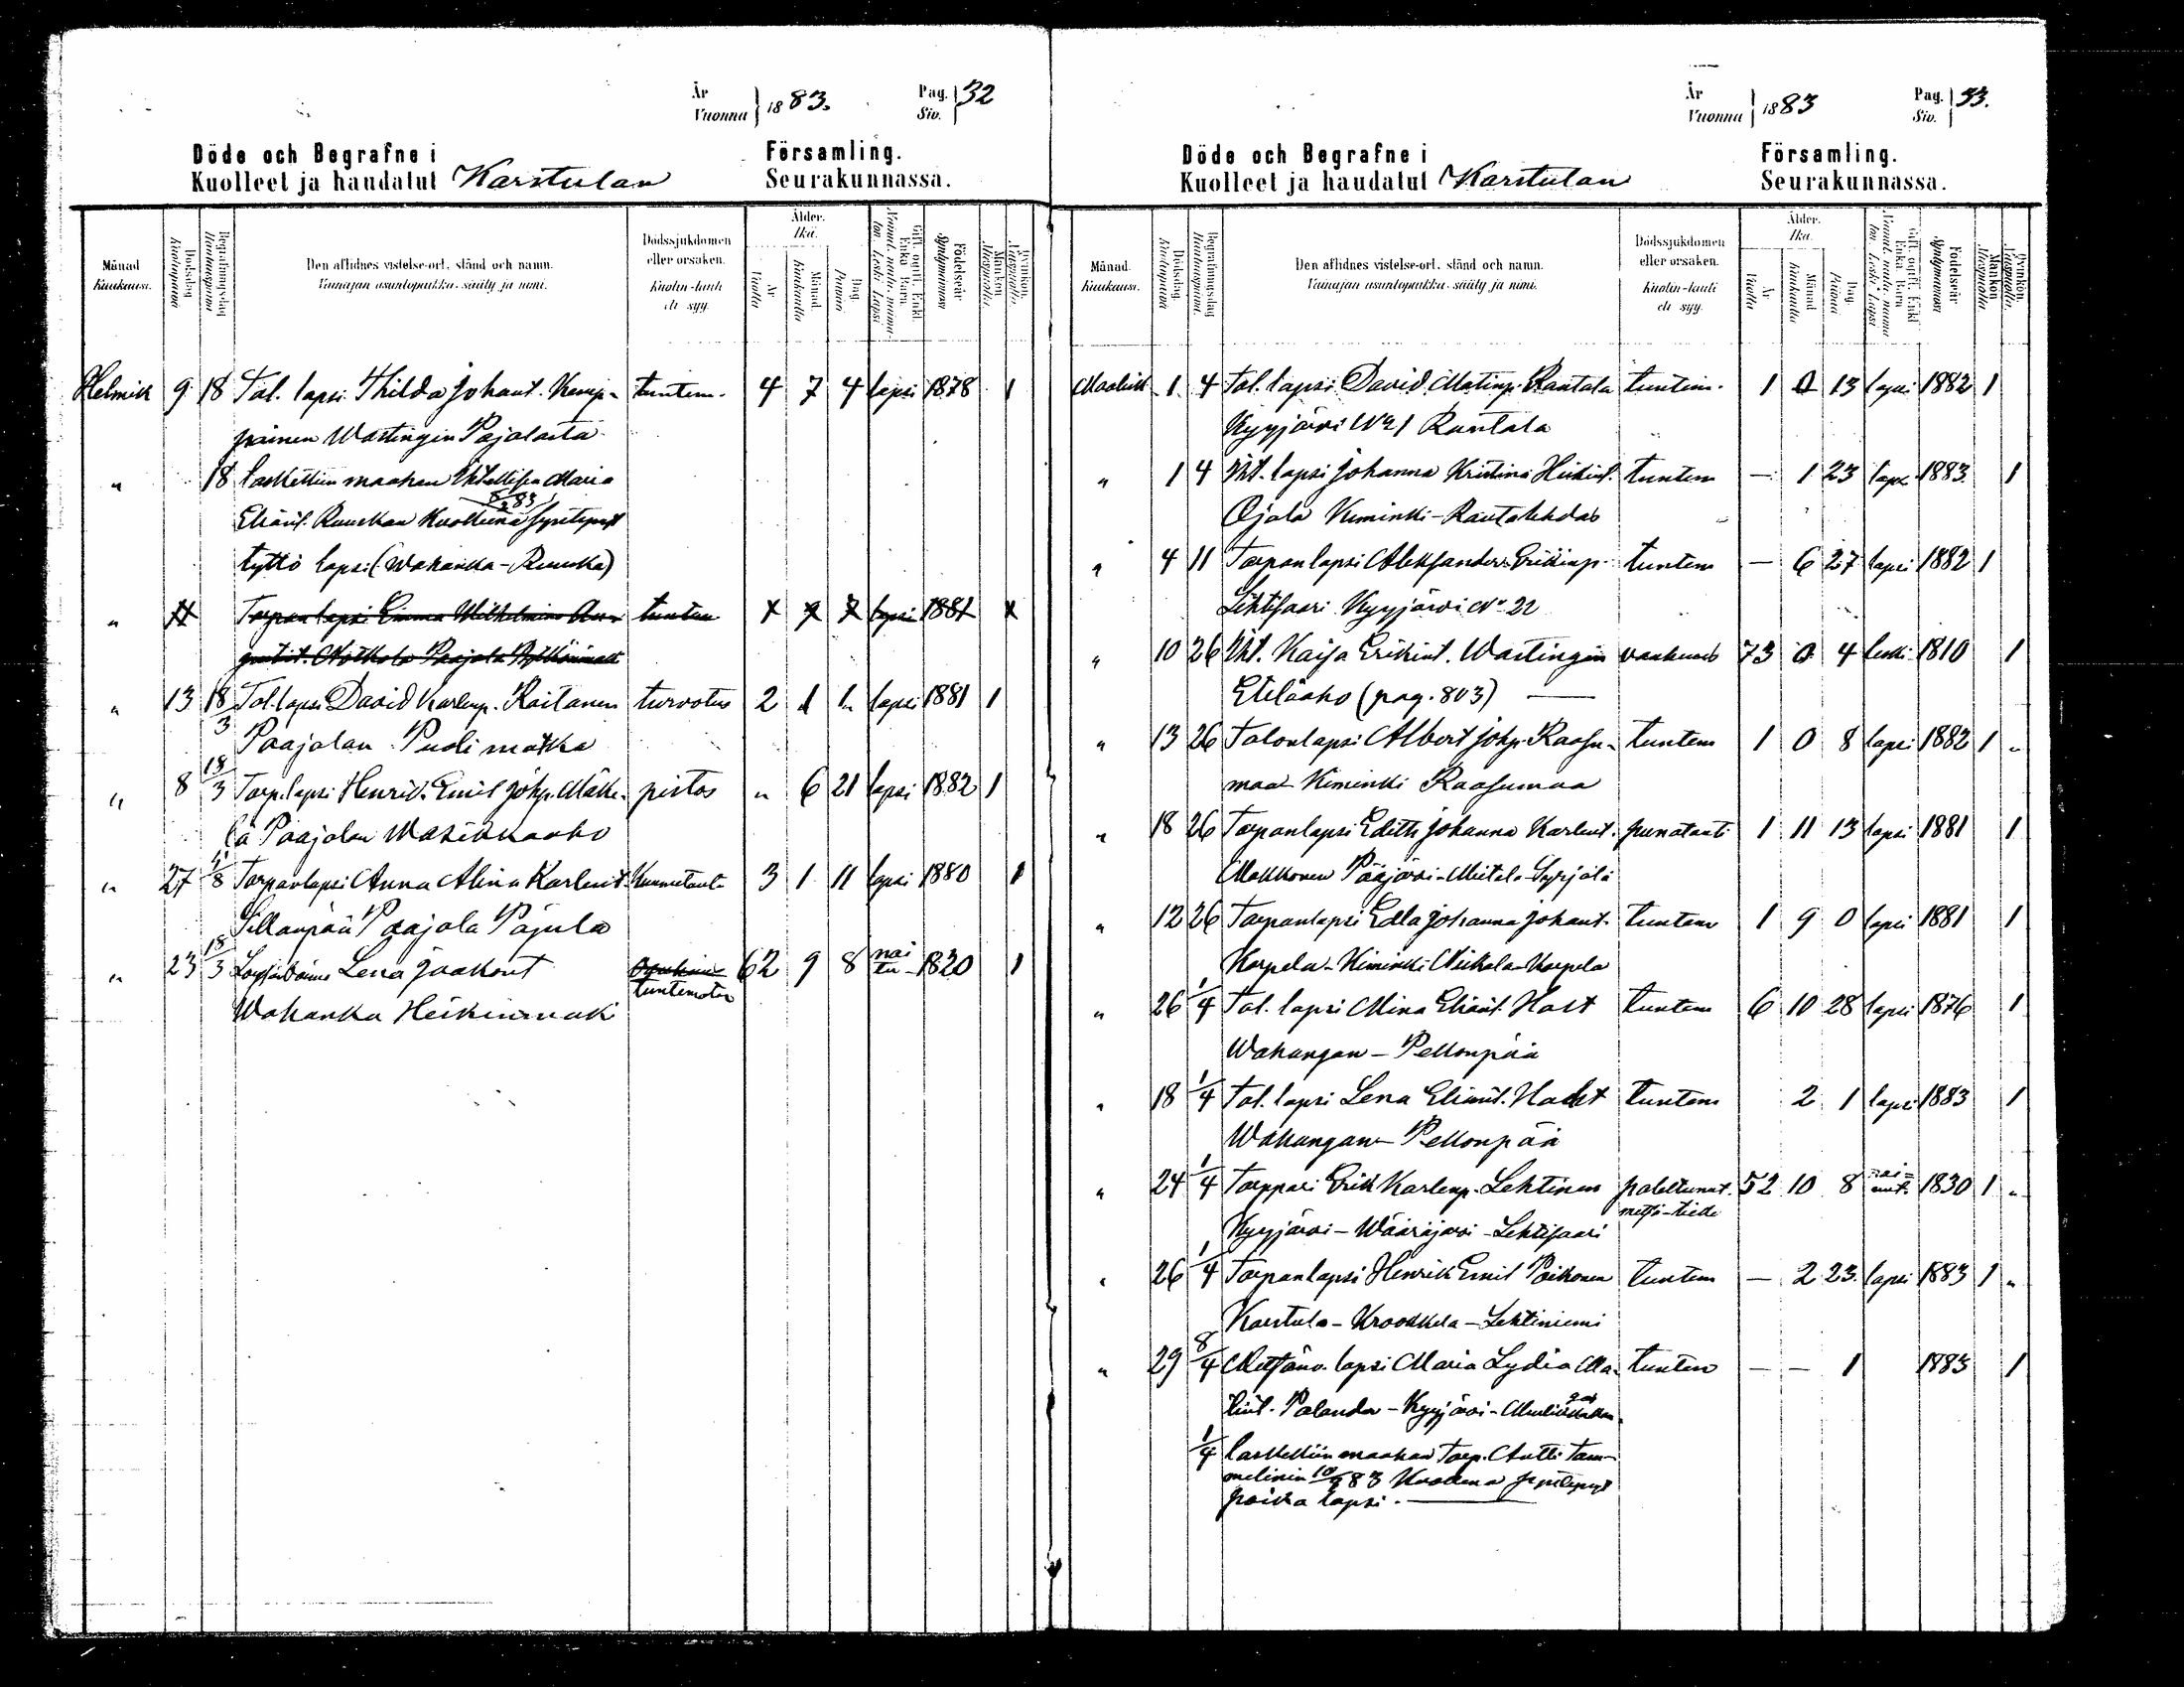 År
Vuonna } 1883. Pag.
Siv. } 32
Döde och Begrafne i Församling.
Kuolleet ja haudatut Karstulan Seurakunnassa.
Månad Kuukausi. Dödsdag Kuolinpäivä Begrafningsdag Hautauspäivä Den aflidnes vistelse-ort, stånd och namn. Vainajan asuntopaikka, sääty ja nimi. Dödssjukdomen eller orsaken. Kuolin-tauti eli syy. Ålder. Ikä. År Vuotta Månad Kuukautta Dag. Päivää Födelseår Syntymävuosi Mankön. Miespuolia. Qvinkön.
Helmik 9 18 Tal. lapsi Thilda Johant. Kemp- tuntem. 4 7 4 lapsi 1878 1
painen Wastingin Pajalasta
" 18 laskettiin maahan Itsellisen Maria
Eliänt. Ruuskan kuolleena syntynyt
tyttö lapsi (Wahanka-Ruuska)
" Torpan lapsi Emma Wilhelmina tuntem lapsi 1881
Notkola Paajala
" 13 18/3 Tal. lapsi David Karlinp. Raitanen turvotus 2 1 1 lapsi 1881 1
Paajalan Pudi matka
" 8 18/3 Torp. lapsi Henrik Emil Johp. Mäke- pistos " 6 21 lapsi 1882 1
lä Paajalan Wasikkaaho
" 27 Torpanlapsi Anna Alina Karlint. Kuumetaut 3 1 11 lapsi 1880 1
Sillanpää Paajala Pajula
" 23 18/3 Lena Jaakont 62 9 8 nai
tu 1820 1
tuntematon
Wahanka Heikinmäk
År
Vuonna } 1883 Pag.
Siv. } 33.
Döde och Begrafne i Församling.
Kuolleet ja haudatut Karstulan Seurakunnassa.
Månad Kuukausi. Dödsdag. Kuolinpäivä Begrafningsdag Hautauspäivä. Den aflidnes vistelse-ort, stånd och namn. Vainajan asuntopaikka, sääty ja nimi. Dödssjukdomen eller orsaken. Kuolin-tauti eli syy. Ålder. Ikä. År Vuotta Månad Kuukautta Dag. Päivää Födelseår Syntymävuosi Mankön Miespuolia. Qvinkön.
Maalisk 1 4 Tal. lapsi David Matinp. Rantala tuntem. 1 0 13 lapsi 1882 1
Kyyjärvi No 1 Rantala
" 1 4 Itt. lapsi Johanna Kristina Heikint. tuntem — 1 23 laps 1883 1
Ojala Kiminki-Rautatehdas
" 4 11 Torpanlapsi Aleksander Erikinp. tuntem — 6 27 lapsi 1882 1
Lehtisaari Kyyjärvi No 22
" 10 26 Itt. Kaisa Erikint. Wastingin vanhuus 73 0 4 leski 1810 1
Eteläaho (pag. 803) —
" 13 26 Talonlapsi Albert Johp. Raasu- tuntem 1 0 8 lapsi 1882 1 "
maa Kiminki Raasumaa
" 18 26 Torpanlapsi Edith Johanna Karlint. punatauti 1 11 13 lapsi 1881 1
Makkonen Pääjärvi-Meitala-Syrjälä
" 12 26 Torpanlapsi Edla Johanna Johant. tuntem 1 9 0 lapsi 1881 1
Korpela-Kiminki Korpela
" 26 1/4 Tal. lapsi Mina Eliänt. Hast tuntem 6 10 28 lapsi 1876 1
Wahangan – Pellonpää
" 18 1/4 Tal. lapsi Lena Eliänt. tuntem 2 1 lapsi 1883 1
Wahangan – Pellonpää
" 24 1/4 Torppari Erik Karlinp. Lehtinen paleltunut. 52 10 8 nai-
nut. 1830 1 "
metsä-tielle
Kyyjärvi – Wääräjärvi – Lehtisaari
" 26 1/4 Torpanlapsi Henrik Emil Poikonen tuntem — 2 23 lapsi 1883 1 "
Karstula – Krookkila – Lehtiniemi
" 29 8/4 Metsänv. lapsi Maria Lydia Ma- tuntem — — 1 1883 1
tint. Palander – Kyyjärvi –
1/4 laskettiin maahan Torp. Antti Tam-
melinin kuolleena syntynyt
poika lapsi. —